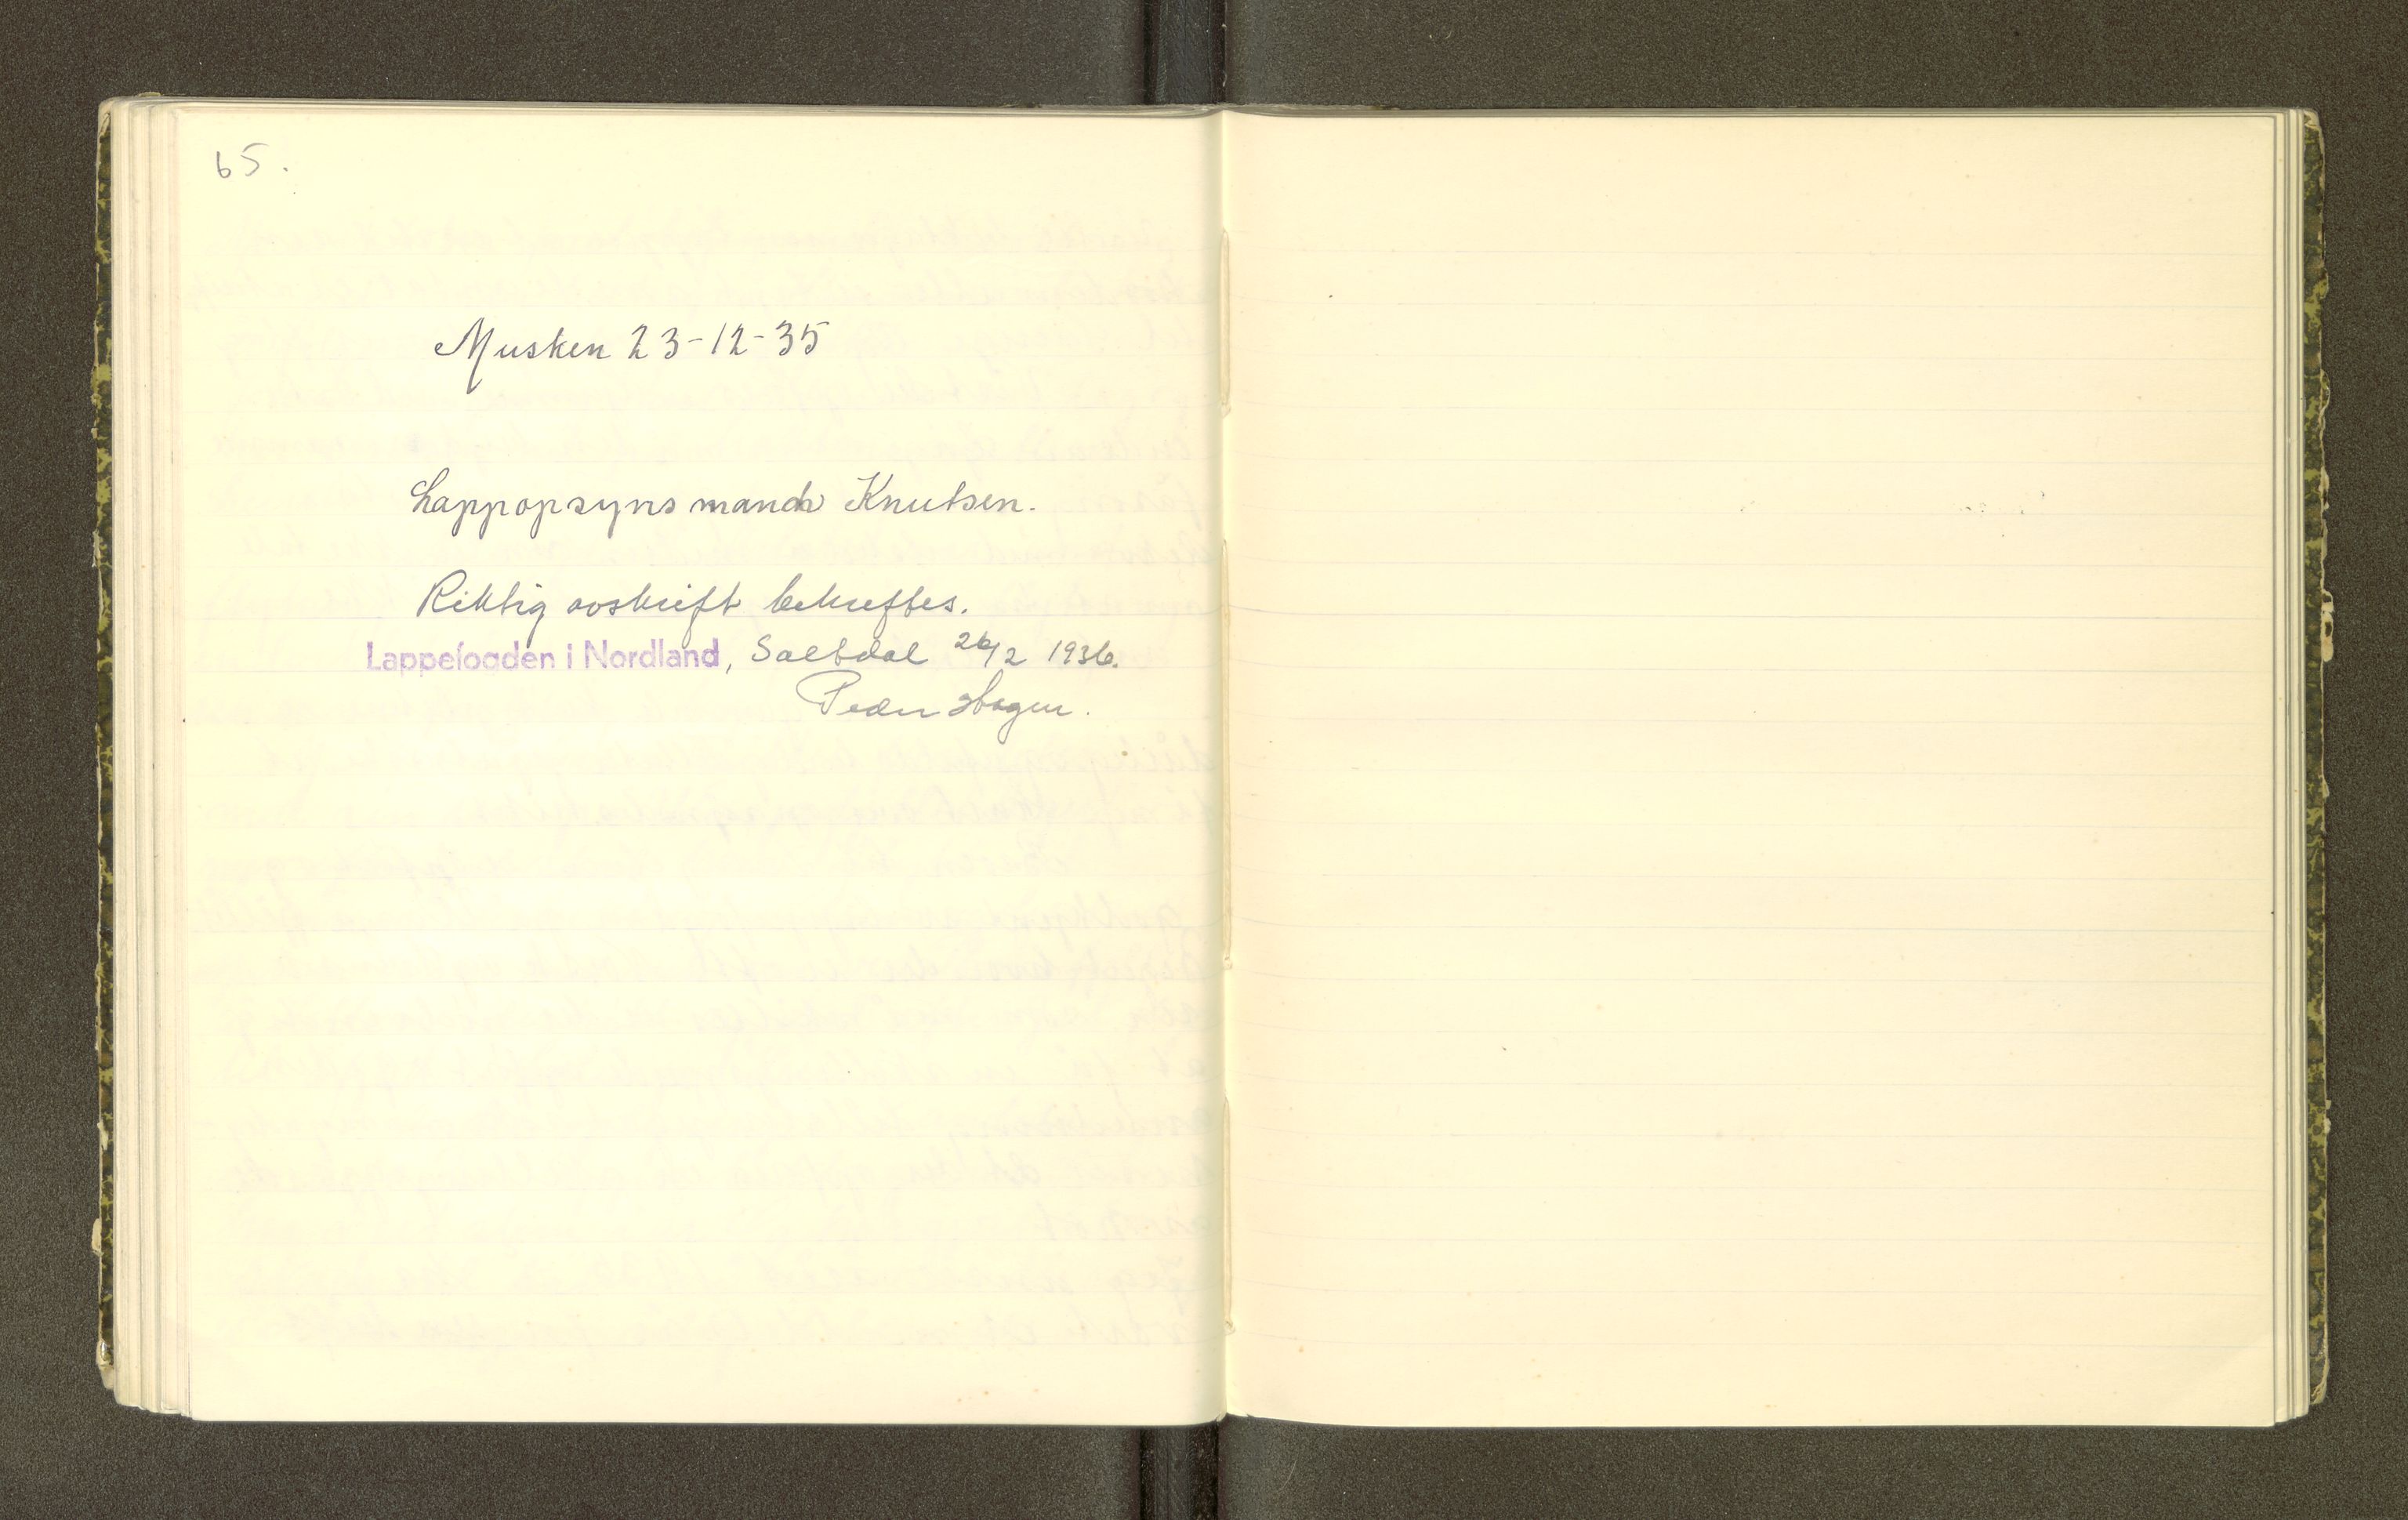 65.
Musken 23-12-35
Lappopsynsmand Knutsen.
Riktig avskrift bekreftes.
Lappefogden i Nordland, Saltdal 26/2 1936.
Peder Hagen.